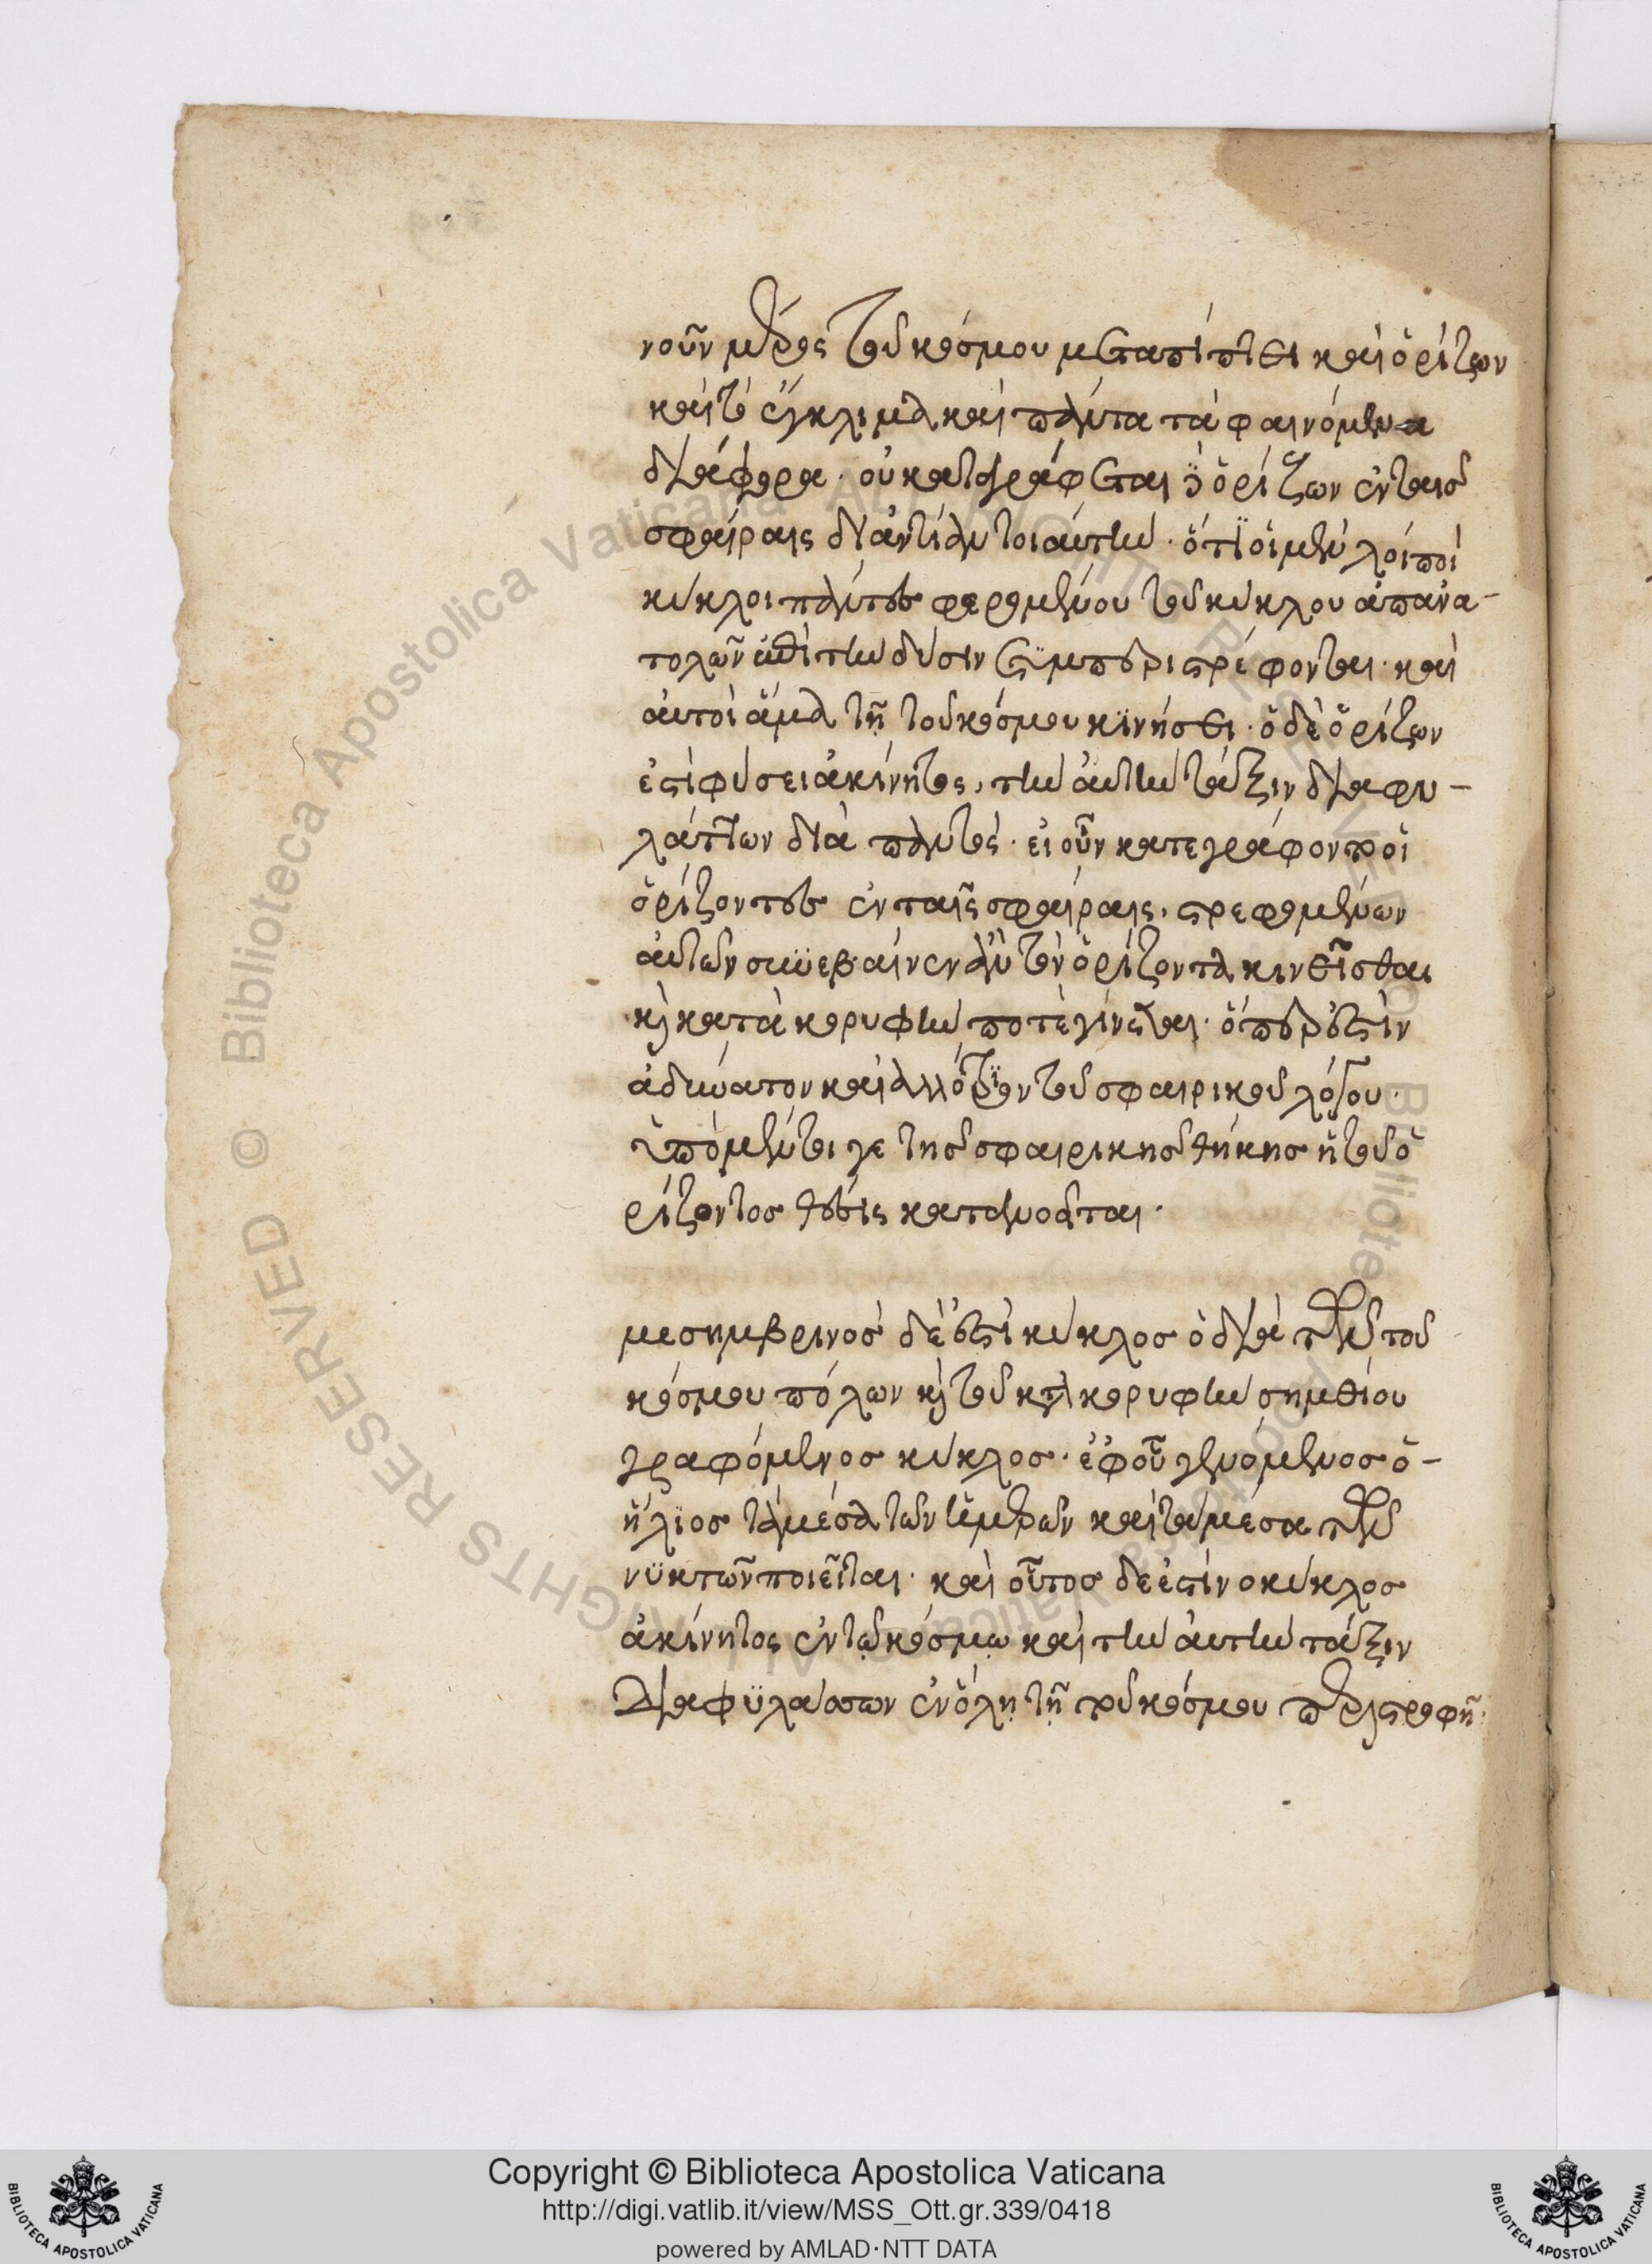 νοῦν μέρος τοῦ κόσμου μεταπίπτει καὶ ὁρίζων
καὶ τὸ ἔγκλιμα καὶ πάντα τὰ φαινόμενα
διάφορα. οὐ καταγράφεται ὁ ὁρίζων ἐν ταισ
σφαίραις δι' ἀντίαν τοιαύτην. ὅτι οἱ μὲν λοιποὶ
κύκλοι πάντες φερομένου τοῦ κύκλου ἀπ' ἀνα-
τολῶν ἐπὶ τὴν δύσιν συμπεριστρέφονται. καὶ
αυτοὶ ἅμα τῇ τοῦ κόσμου κινήσει. ὁ δὲ ὁρίζων
ἐστὶ φύσει ἀκίνητος, τὴν ἀυτὴν τάξιν διαφυ-
λάττων διὰ παντός. εἰ οὖν κατεγράφοντο οἱ
ὁρίζοντες ἐν ταῖς σφαίραις, στρεφομένων
αὐτῶν συνέβαινεν ἂν τὸν ὁρίζοντα κινεῖσθαι
κὶ κατὰ κορυφὴν ποτὲ γίνεσθαι. ὅπερ ἐστὶν
ἀδύνατον καὶ ἀλλότριον τοῦ σφαιρικοῦ λόγου.
ὑπὸ μέντοι γε τησ σφαιρικησ θήκησ ἡ τοῦ ὁ
ρίζοντοσ θέσις κατανοεῖται.
μεσημβρινοσ δέ ἐστὶ κύκλοσ ὁ διὰ τῶν τοῦ
κόσμου πόλων κὶ τοῦ κατὰ κορυφὴν σημείου
γραφόμενοσ κύκλοσ. ἐφ' οὗ γενόμενοσ ὁ-
ἥλιοσ τὰ μέσα τῶν ἡμερῶν καὶ τὰ μέσα τῶν
νυκτῶν ποιεῖται. καὶ οὗτοσ δε ἐστὶν ο κύκλοσ
ἀκίνητος ἐν τῷ κόσμῳ καὶ τὴν ἀυτὴν τάξιν
Διαφυλάσσων ἐν ὅλῃ τῇ τοῦ κόσμου περιστροφῇ.
Copyright © Biblioteca Apostolica Vaticana
http://digi.vatlib.it/view/MSS_Ott.gr.339/0418
powered by AMLAD·NTT DATA